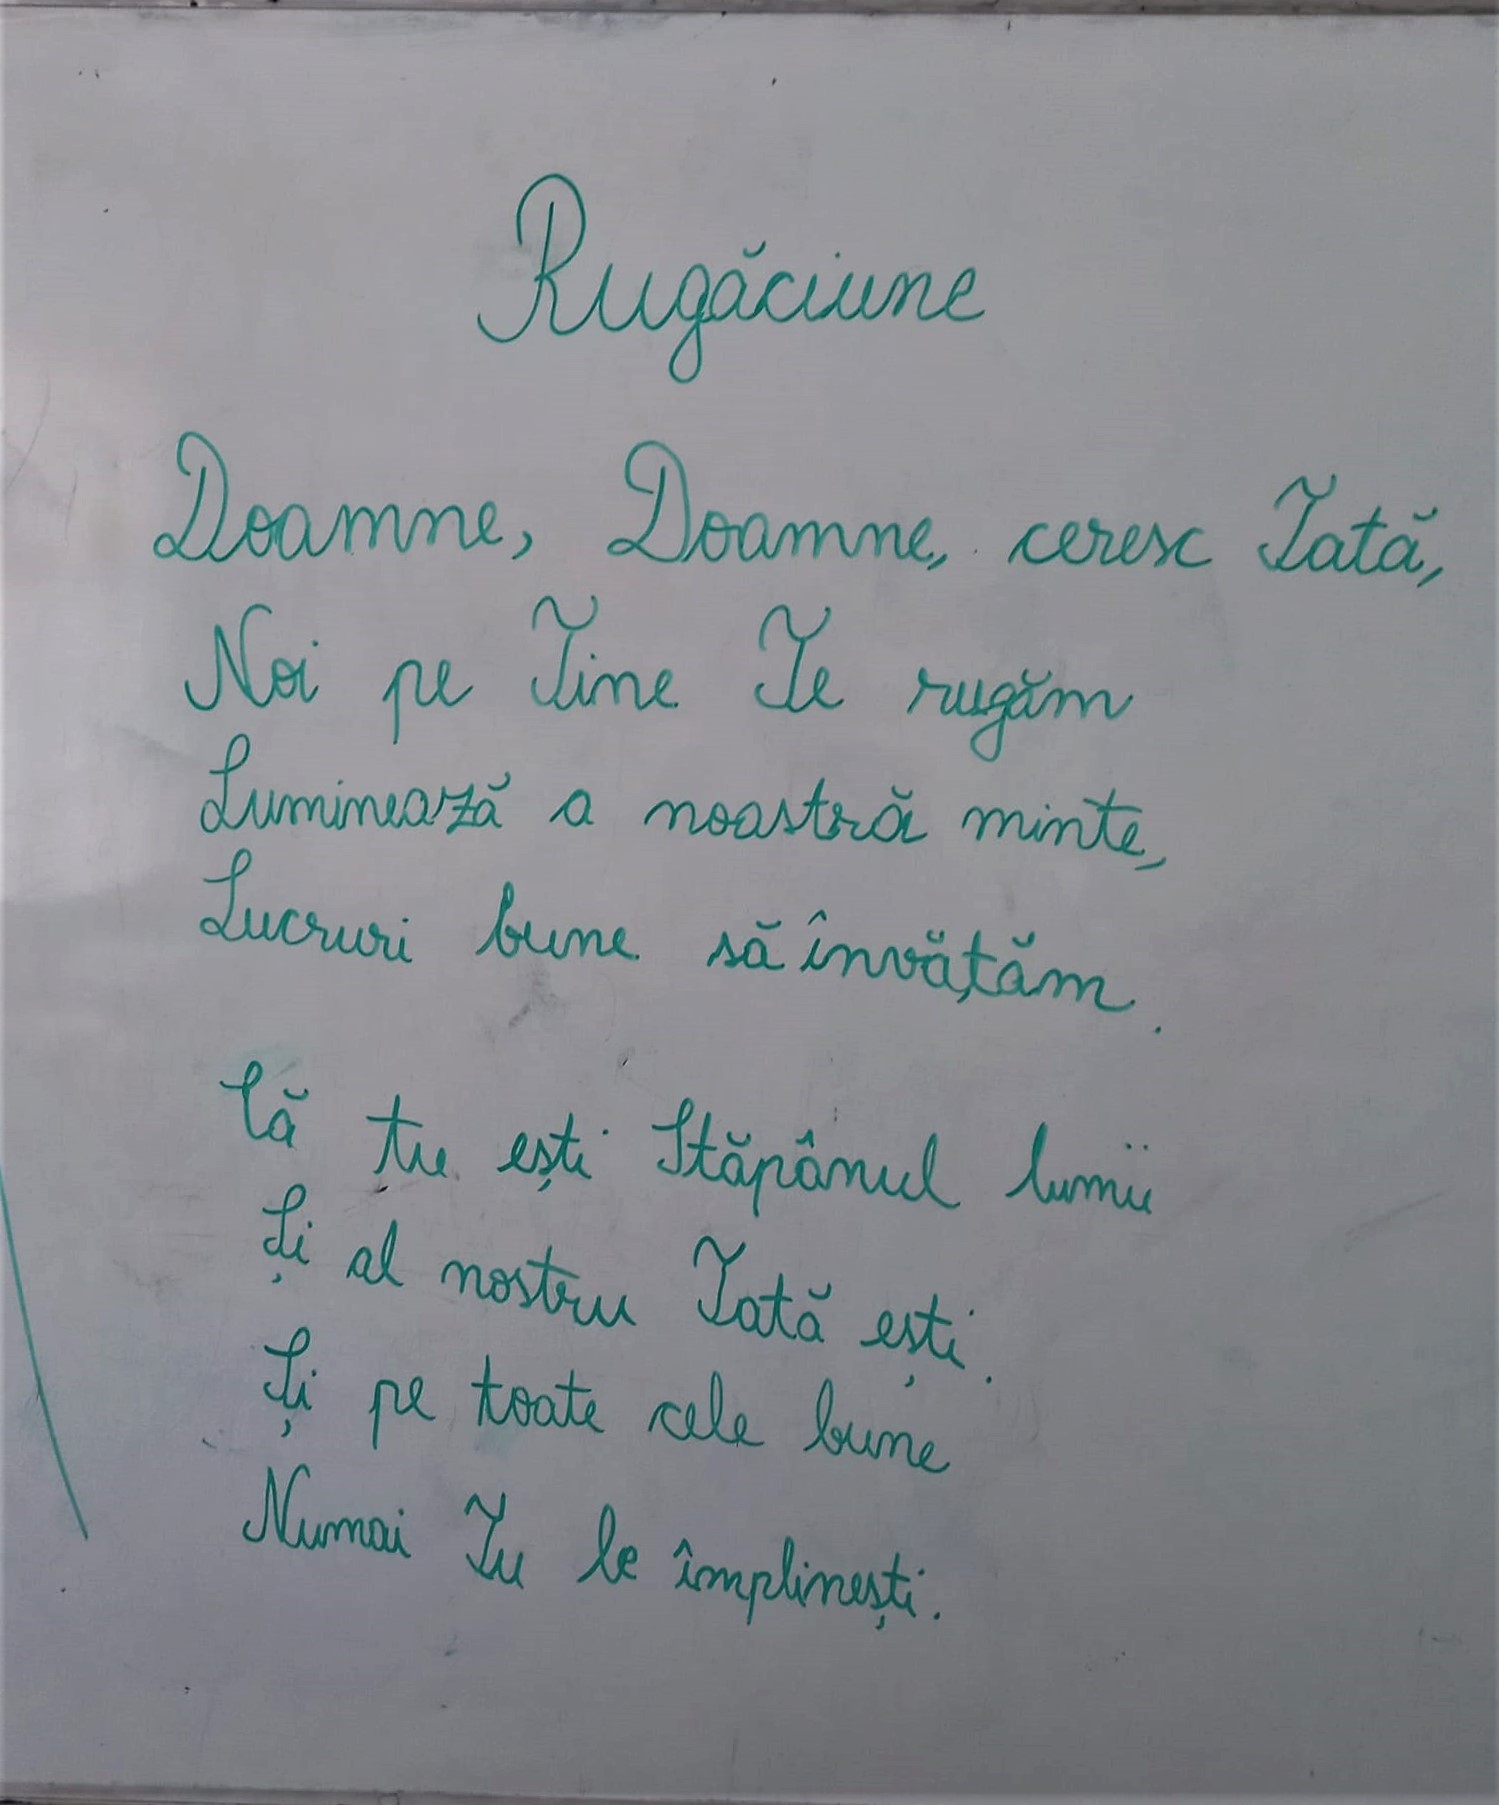 Rugăciune
Doamne, Doamne, ceresc Tată,
Noi pe Tine Te rugăm
Luminează a noastră minte,
Lucruri bune să învățăm.
Că tu ești Stăpânul lumii
Și al nostru Tată ești.
Și pe toate cele bune
Numai Tu le împlinești.